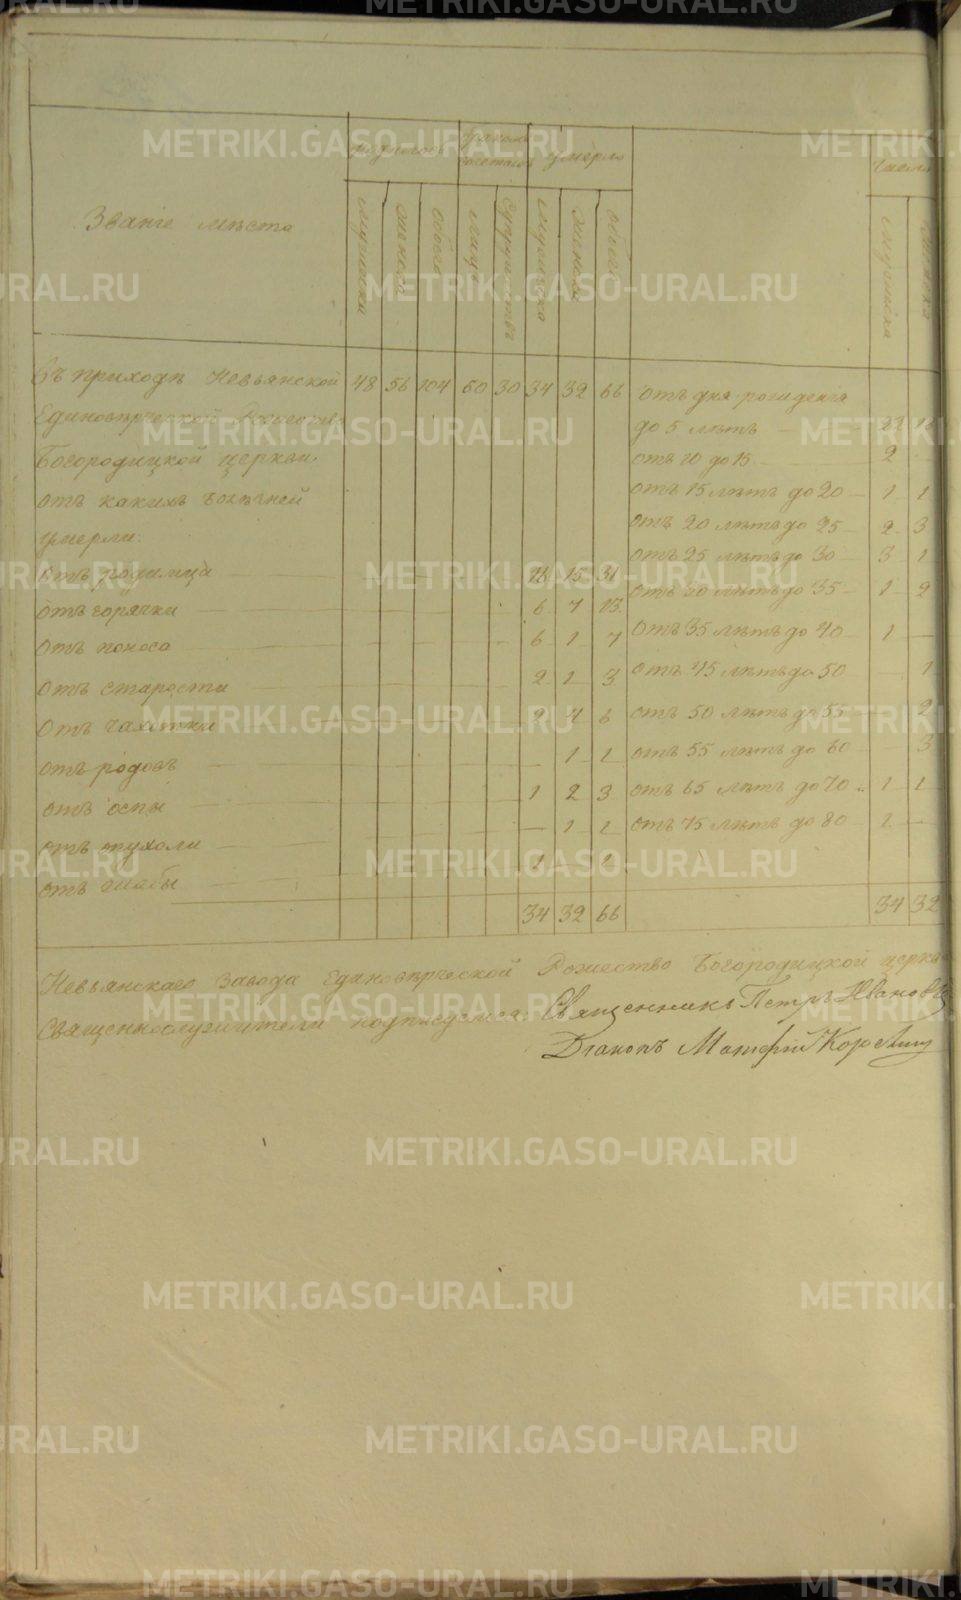 METRIKI.GASO-URAL.RU
Званіе мѣста
родилось
бракомъ сочетано
умерло
Число
мужеска
женска
обоего
лицъ
супружествъ
мужеска
женска
обоего
мужеска
женска
Въ приходѣ Невьянской 48 56 104 60 30 34 32 66
Единовѣрческой Рожество
Богородицкой церкви.
отъ какихъ болѣзней
умерли:
отъ родимца 16 15 31
отъ горячки 6 7 13
отъ поноса 6 1 7
отъ старости 2 1 3
отъ чахотки 2 4 6
отъ родовъ — 1 1
отъ оспы 1 2 3
отъ опухоли — 1 1
отъ жабы 1 — 1
34 32 66
отъ дня рожденія
до 5 лѣтъ — 22
отъ 10 до 15 — 2
отъ 15 лѣтъ до 20 — 1 1
отъ 20 лѣтъ до 25 — 2 3
отъ 25 лѣтъ до 30 — 3 1
отъ 30 лѣтъ до 35 — 1 2
отъ 35 лѣтъ до 40 — 1 —
отъ 45 лѣтъ до 50 — 1
отъ 50 лѣтъ до 55 — 2
отъ 55 лѣтъ до 60 — 3
отъ 65 лѣтъ до 70 — 1 1
отъ 75 лѣтъ до 80 — 1 —
34 32
Невьянскаго завода Единовѣрческой Рожество Богородицкой церкви
Священнослужители подписуемся: Священникъ Петръ Ивановъ
Діаконъ Матфій